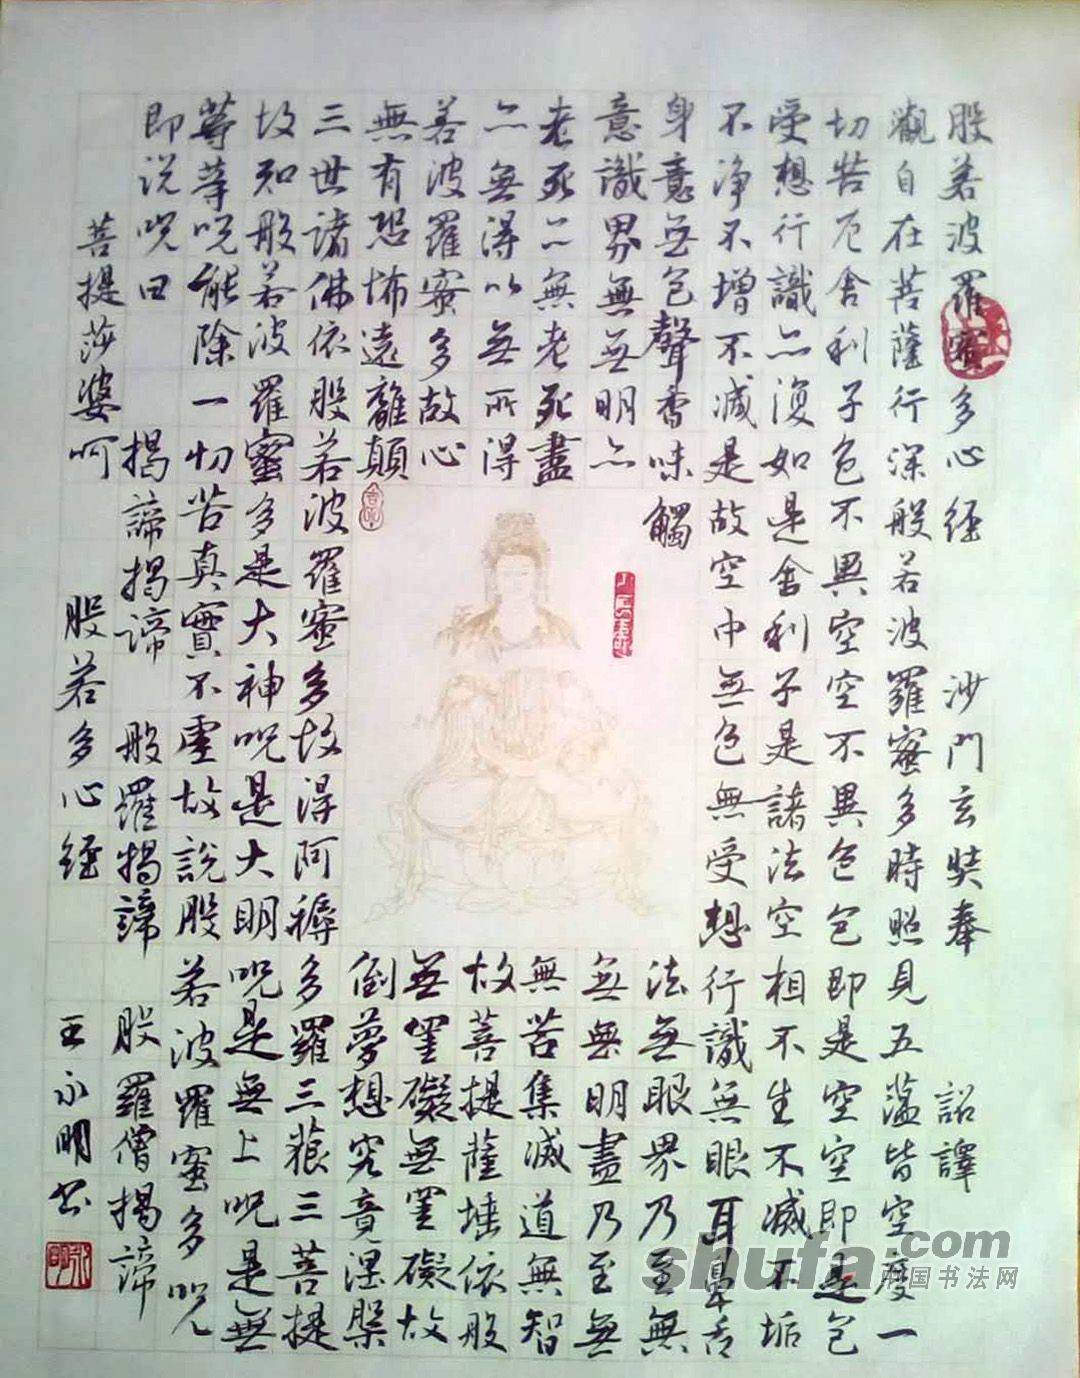 般若波羅蜜多心经 沙門玄奘奉 詔譯
觀自在菩薩行深般若波羅蜜多時照見五蕴皆空度一
切苦厄舍利子色不異空空不異色色即是空空即是色
受想行識亦復如是舍利子是諸法空相不生不滅不垢
不净不增不减是故空中無色無受想行識無眼耳鼻舌
身意無色聲香味觸 法無眼界乃至無
意識界無無明亦 無無明盡乃至無
老死亦無老死盡 無苦集滅道無智
亦無得以無所得 故菩提薩埵依般
若波羅蜜多故心 無罣礙無罣礙故
無有恐怖遠離顛 倒夢想究竟涅槃
三世諸佛依般若波羅蜜多故得阿耨多羅三藐三菩提
故知般若波羅蜜多是大神呪是大明呪是無上呪是無
等等呪能除一切苦真實不虚故說般若波羅蜜多呪
即说呪曰 揭諦揭諦 般羅揭諦 般羅僧揭諦
菩提莎婆呵 般若多心經 王永明书
shufa.com
中国书法网